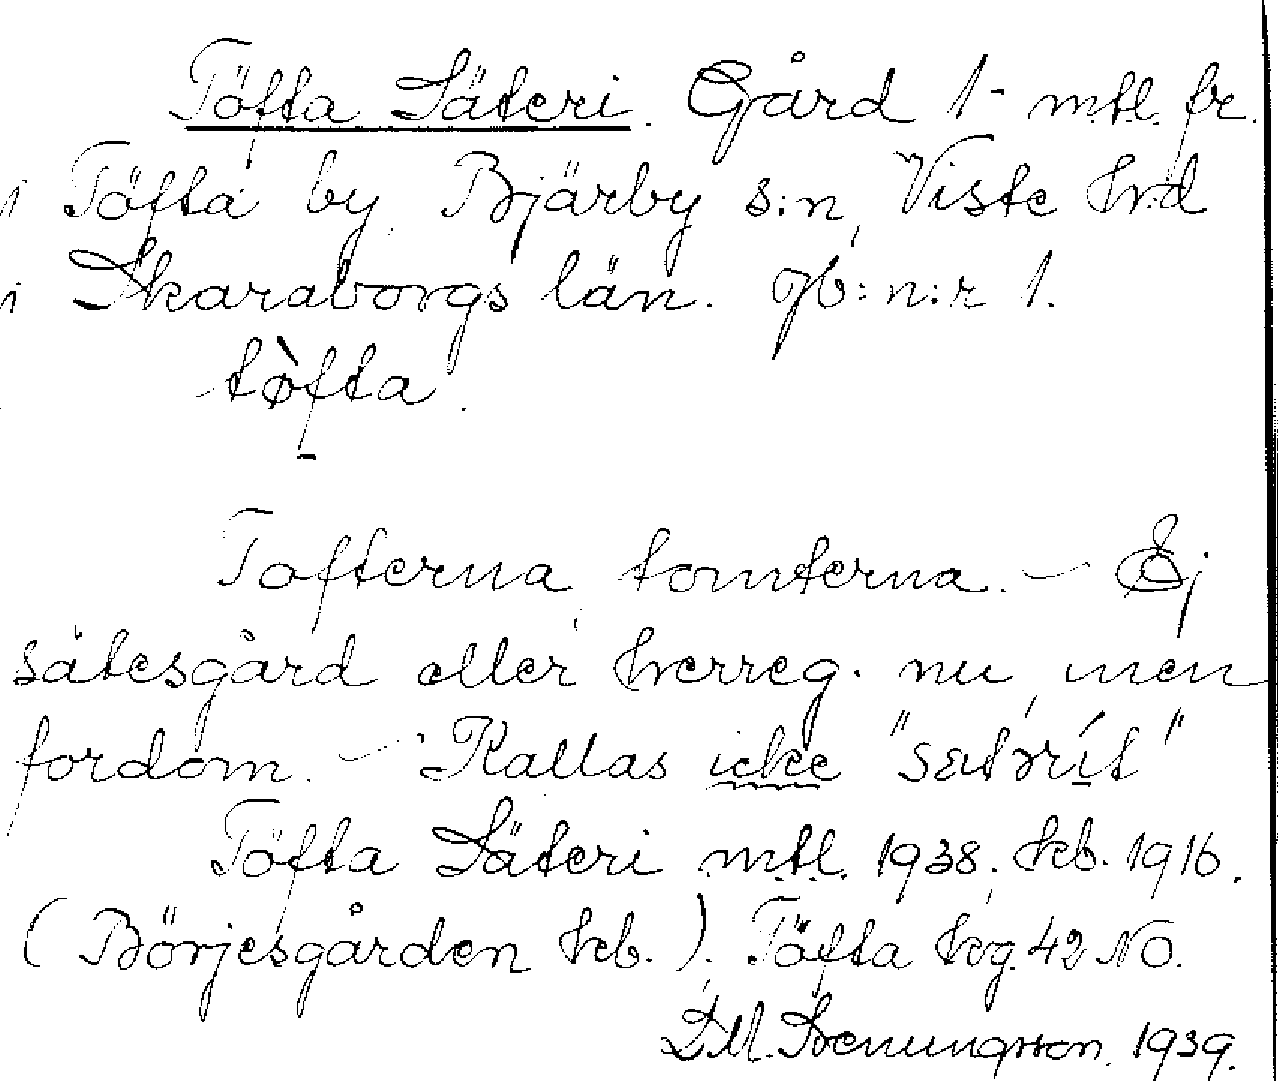 Töfta Säteri. Gård 1- mtl. fr.
i Töfta by, Bjärby s:n, Viste hd
i Skaraborgs län. Jb:n:r 1.
tòfta.
Tofterna, tomterna. – Ej
sätesgård eller herreg. nu, men
fordom. – Kallas icke "
Töfta Säteri mtl. 1938. hcb. 1916.
(Börjesgården hcb.). Töfta 42 NO.
1939.